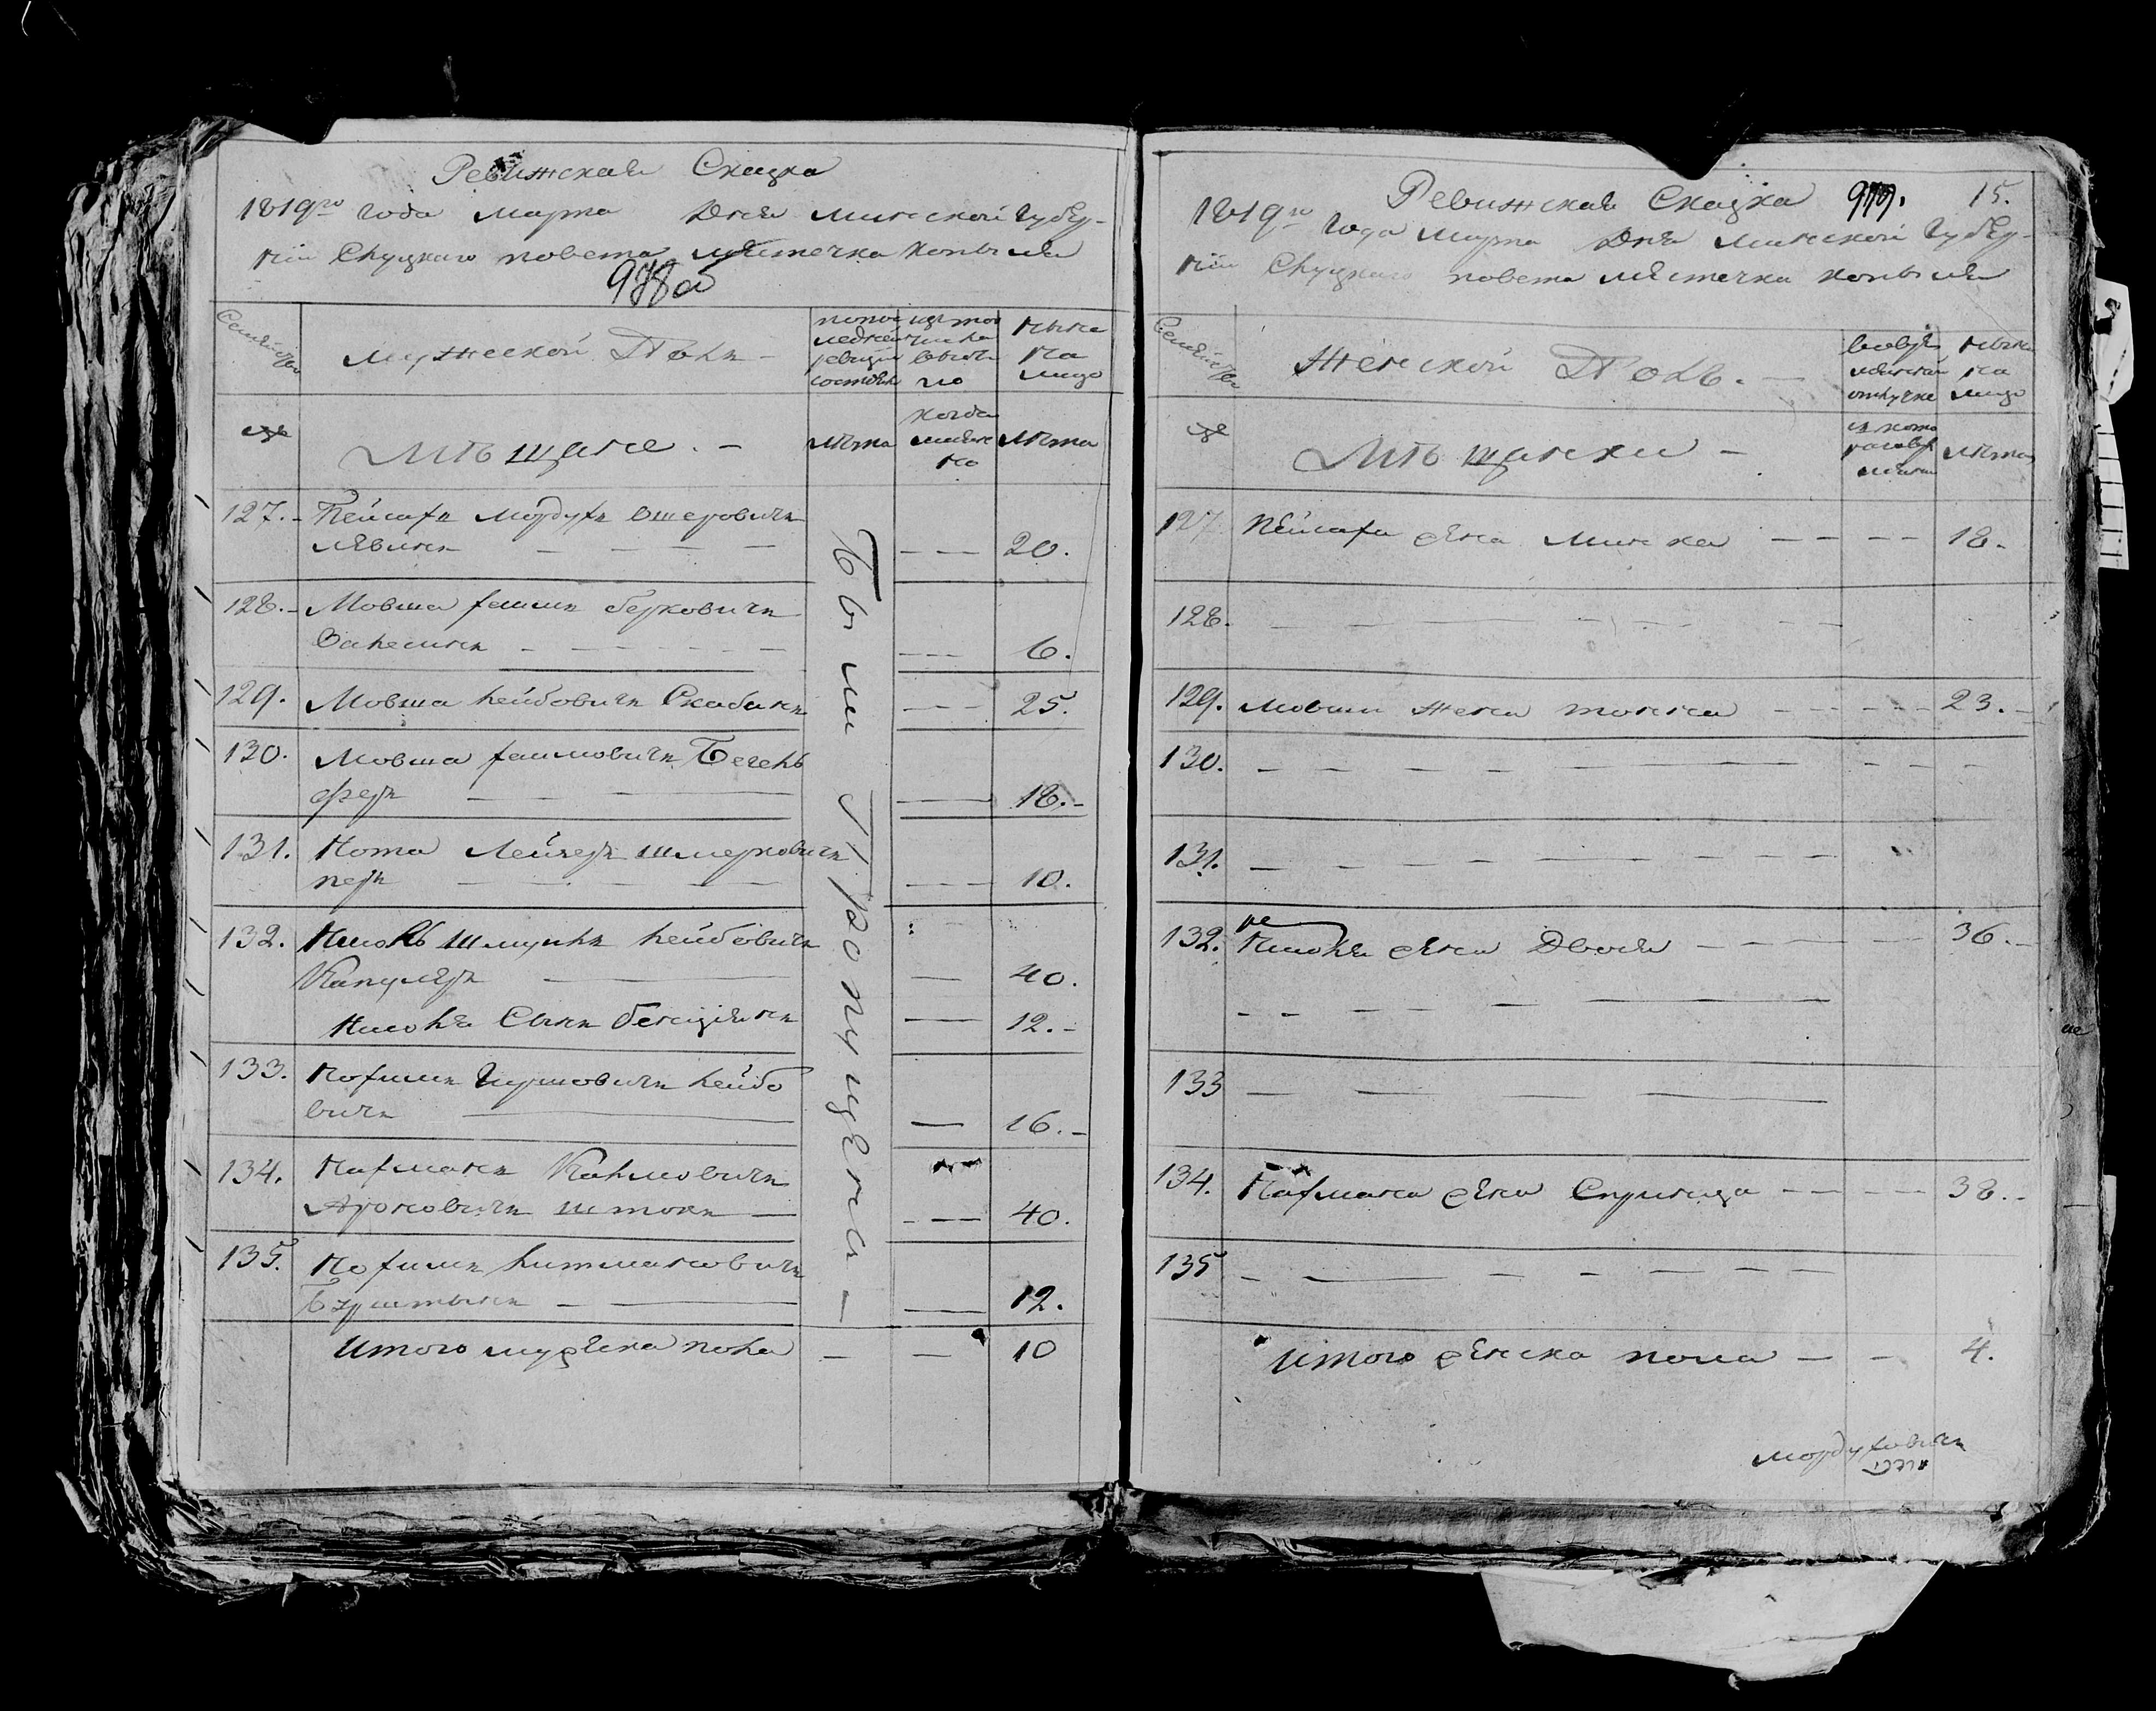 Ревижская Сказка
1819го года марта Дня минской губер-
нiи Слуцкаго повета местечка копыля
978об
Семейства
мужеской Полъ -
попос
ледней
ревизiи
состоял
изъ того
числа
выбы
ло
ныне
на
лицо
мѣщане. -
лѣта
когда
имянно
лѣта
127. - Пейсахъ Мордухъ Ошеровичъ
Левинъ - - - - 20.
128. - Мовша хаимъ берковичъ
- - - 6.
129. Мовша лейбовичъ Скабинъ - - - 25.
130. Мовша хаимовичъ Бегель
феръ - - - 18. -
131. Нота Лейзеръ шмерковичъ
перъ - - - 10.
132. Нисоль Шмуилъ лейбовичъ
Капулеръ - 40.
Нисоля Сынъ бенцiянъ - 12. -
133. Нохимъ Гиршовичъ лейбо
вичъ - 16. -
134. Нахманъ Калмовичъ
Ароновичъ штокъ - - - 40.
135. Нохимъ литмановичъ
Бурштынъ - - 12.
Были Пропущена -
Итого мужеска пола - - 10
Ревижская Сказка 979. 15.
1819го года марта Дня минской губер-
нiи Слуцкаго повета местечка копыля
Семейства
Женской Полъ. -
вовре
менной
отлучке
ныне
на
лицо
мѣщанки -
лѣта
127 Пейсаха жена минка - - - - 18-
128. - - - - -
129. мовши жена тонна - - - - - 23. -
130. - - - - -
131. - - - - -
132. Нисоля жена Двося - - - 36. -
133 - - - -
134. Нахмана жена Спринца - - - - 38. -
135 - - - - -
итого женска пола - - 4.
Мордуховичъ